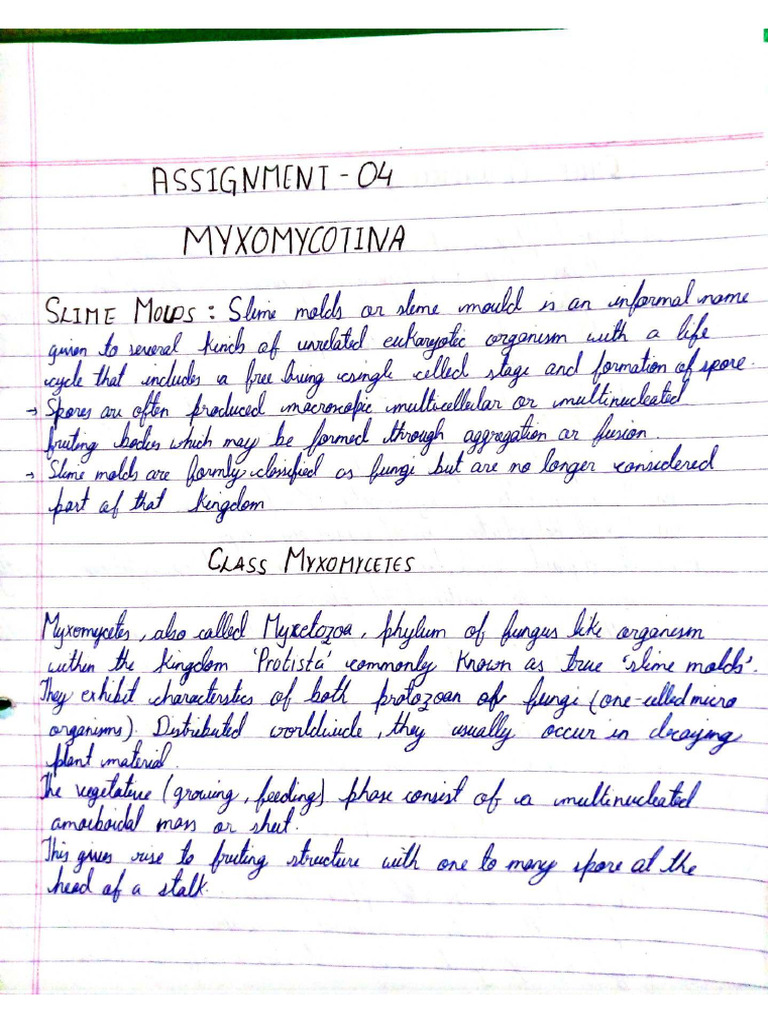 ASSIGNMENT - 04
MYXOMYCOTINA
SLIME MOLDS : Slime molds or slime mould is an informal name
given to several kinds of unrelated eukaryotic organism with a life
cycle that includes a free living single celled stage and formation of spore.
→ Spores are often produced macroscopic multicellular or multinucleated
fruiting bodies which may be formed through aggregation or fusion.
→ Slime molds are formly classified as fungi but are no longer considered
part of that kingdom
CLASS MYXOMYCETES
Myxomycetes, also called Myxetozoa, phylum of fungus like organism
within the kingdom 'Protista' commonly known as true 'slime molds'.
They exhibit characterstics of both protozoan of fungi (one-celled micro
organisms). Distributed worldwide, they usually occur in decaying
plant material.
The vegetative (growing, feeding) phase consist of a multinucleated
amoeboidal mass or sheet.
This gives rise to fruiting structure with one to many spore at the
head of a stalk.